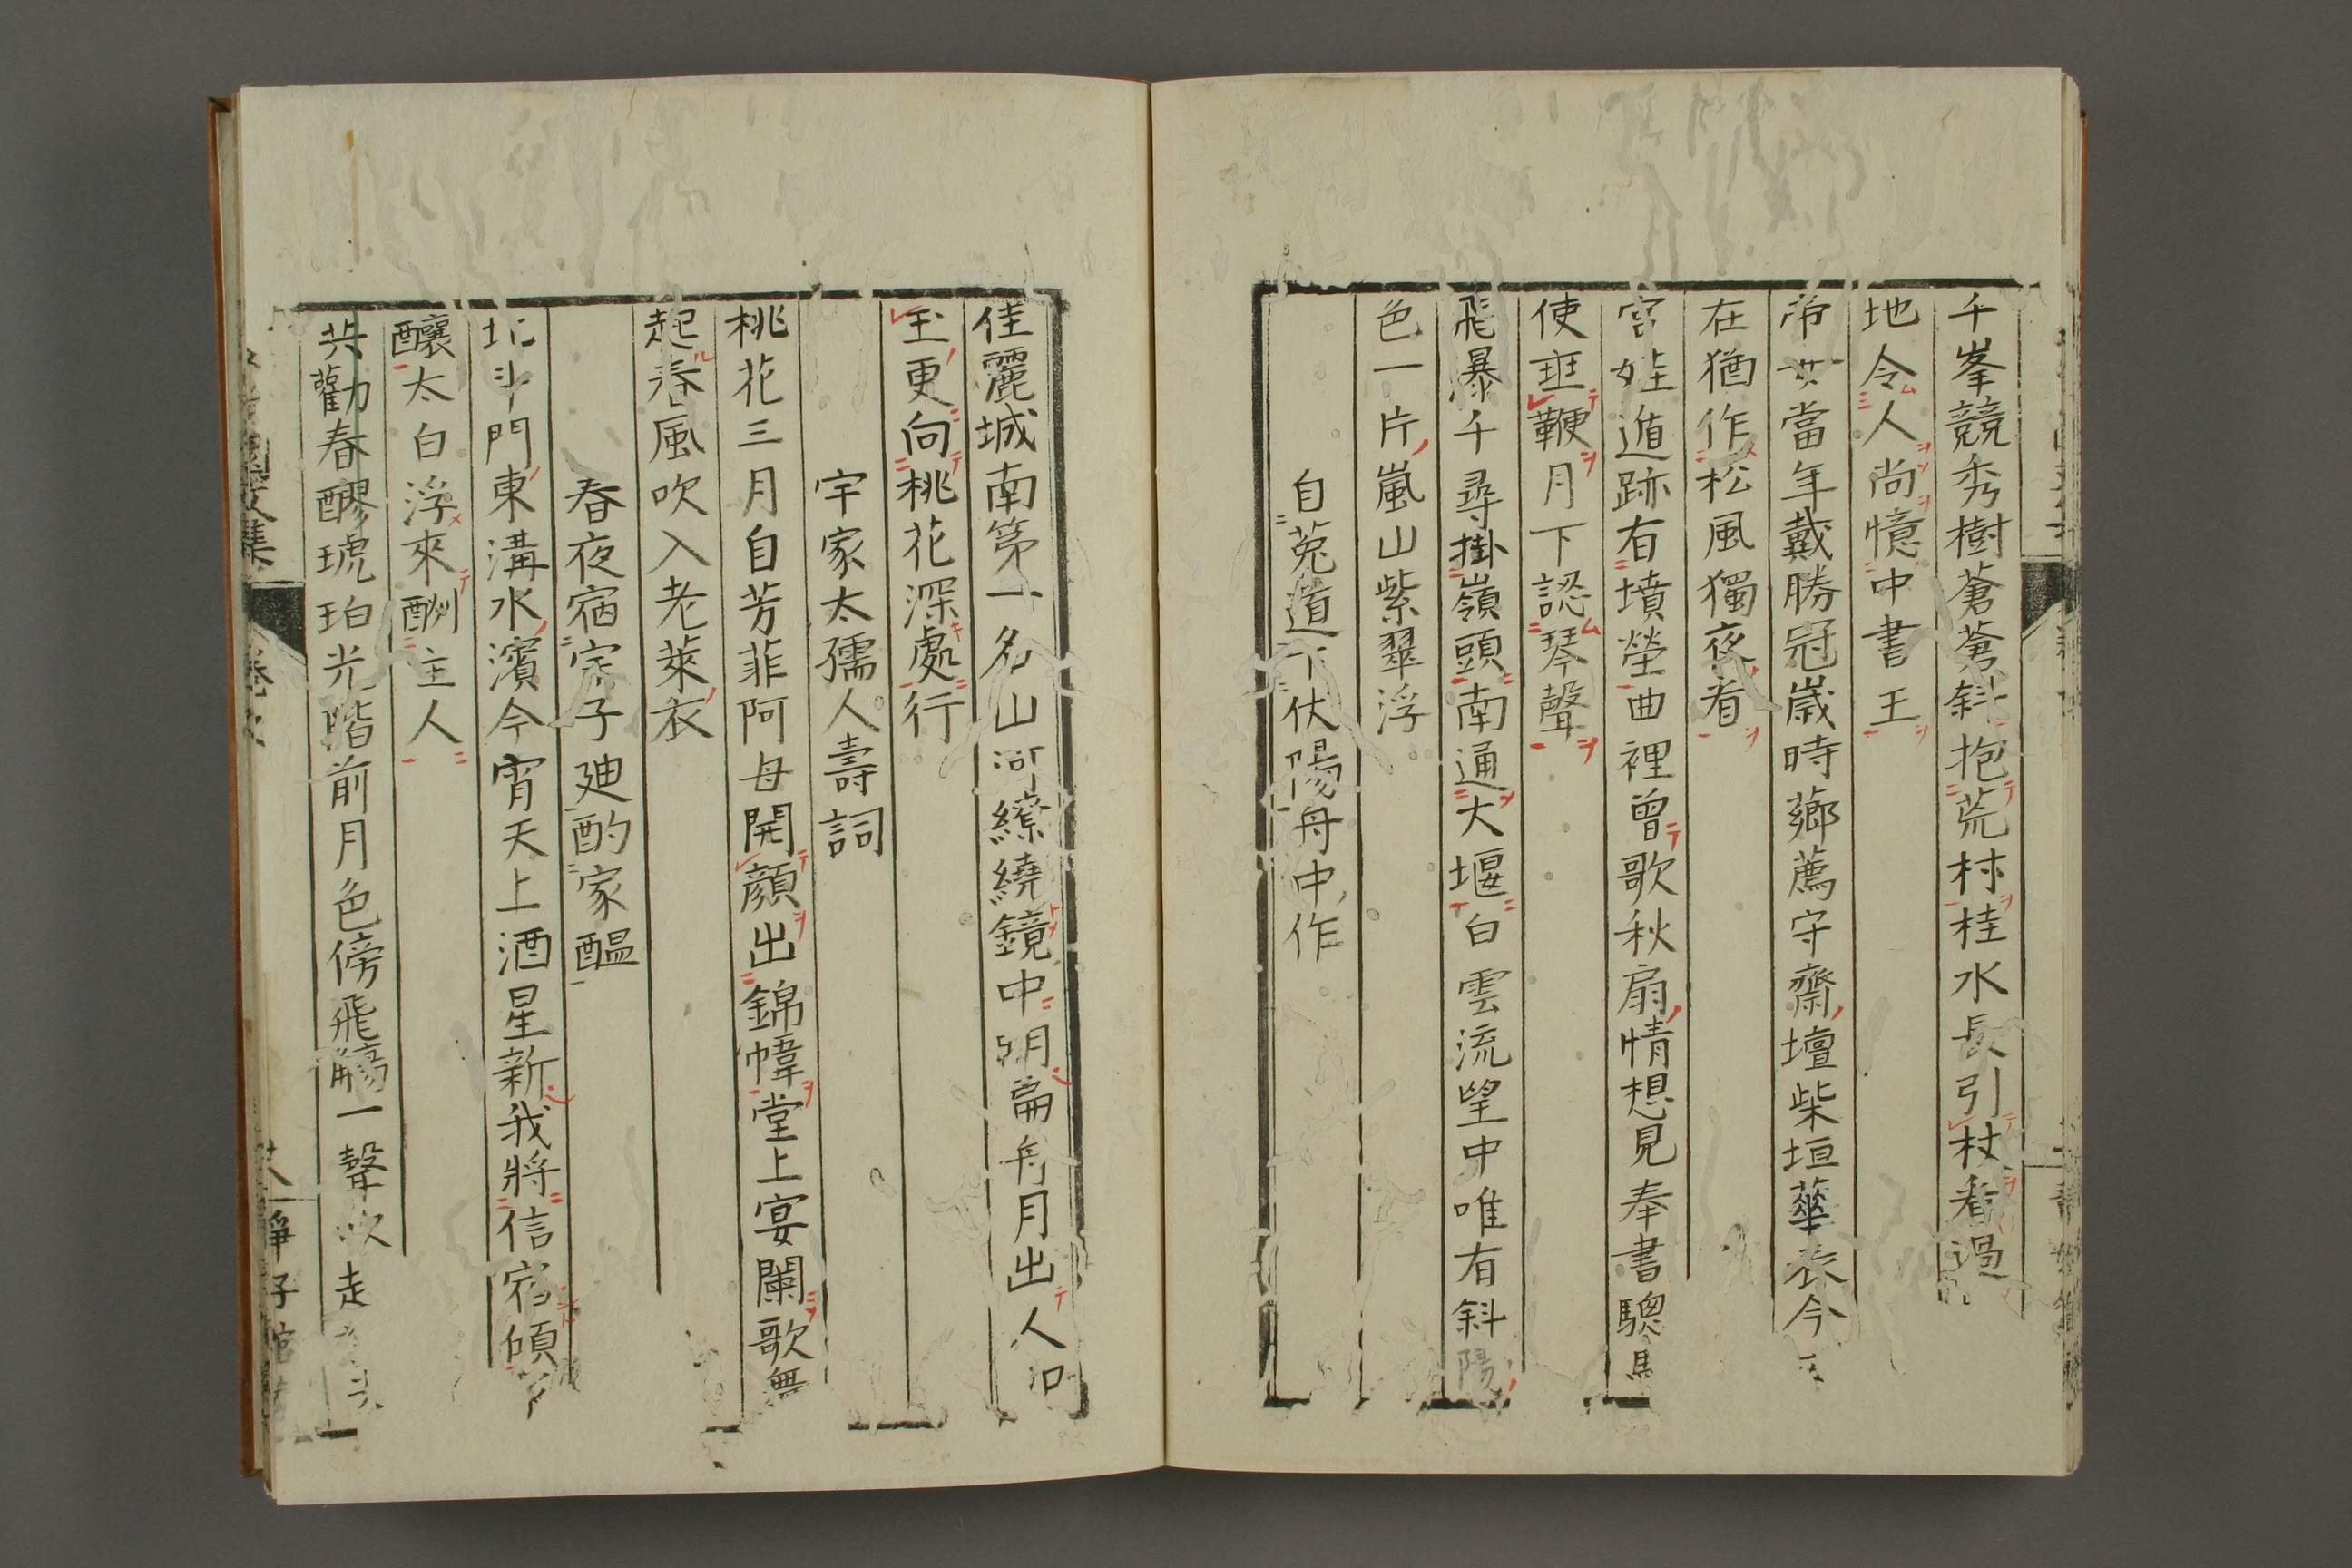 千峯競秀樹蒼蒼斜抱荒村桂水長引杖看過
地令人尚憶中書王
帝 當年戴勝冠歳時薌薦守齋壇柴垣華衣今
在猶作松風獨夜看
宮娃遁跡有墳塋曲裡曾歌秋扇情想見奉書驄馬
使班鞭月下認琴聲
飛瀑千尋掛嶺頭南通大堰白雲流望中唯有斜陽
色一片嵐山紫翠浮
自菟道下伏陽舟中作
佳麗城南第一名山河繚繞鏡中明扁舟月出人
更向桃花深處行
宇家太孺人壽詞
桃花三月自芳菲阿母開顔出錦幃堂上宴闌歌無
起春風吹入老萊衣
春夜宿家子廸酌家醖
北斗門東溝水濱今宵天上酒星新我將信宿傾
釀太白浮來酬主人
共勸春醪琥珀光階前月色傍飛觴一聲吹走
文集
靜子館